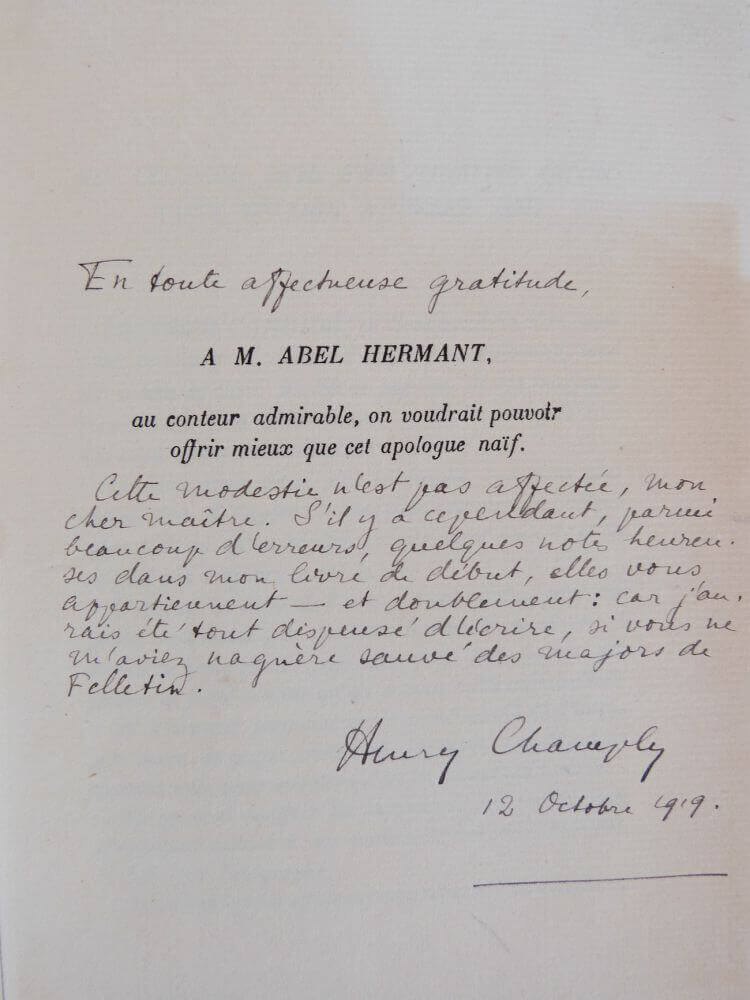 En toute affectueuse gratitude,
A M. ABEL HERMANT,
au conteur admirable, on voudrait pouvoir
offrir mieux que cet apologue naïf.
Cette modestie n'est pas affectée, mon
cher maître. S'il y a cependant, parmi
beaucoup d'erreurs, quelques notes heureu-
ses dans mon livre de début, elles vous
appartiennent — et doublement : car j'au-
rais été tout dispensé d'écrire, si vous ne
m'aviez naguère sauvé des majors de
Felletin.
Henry Champly
12 Octobre 1919.